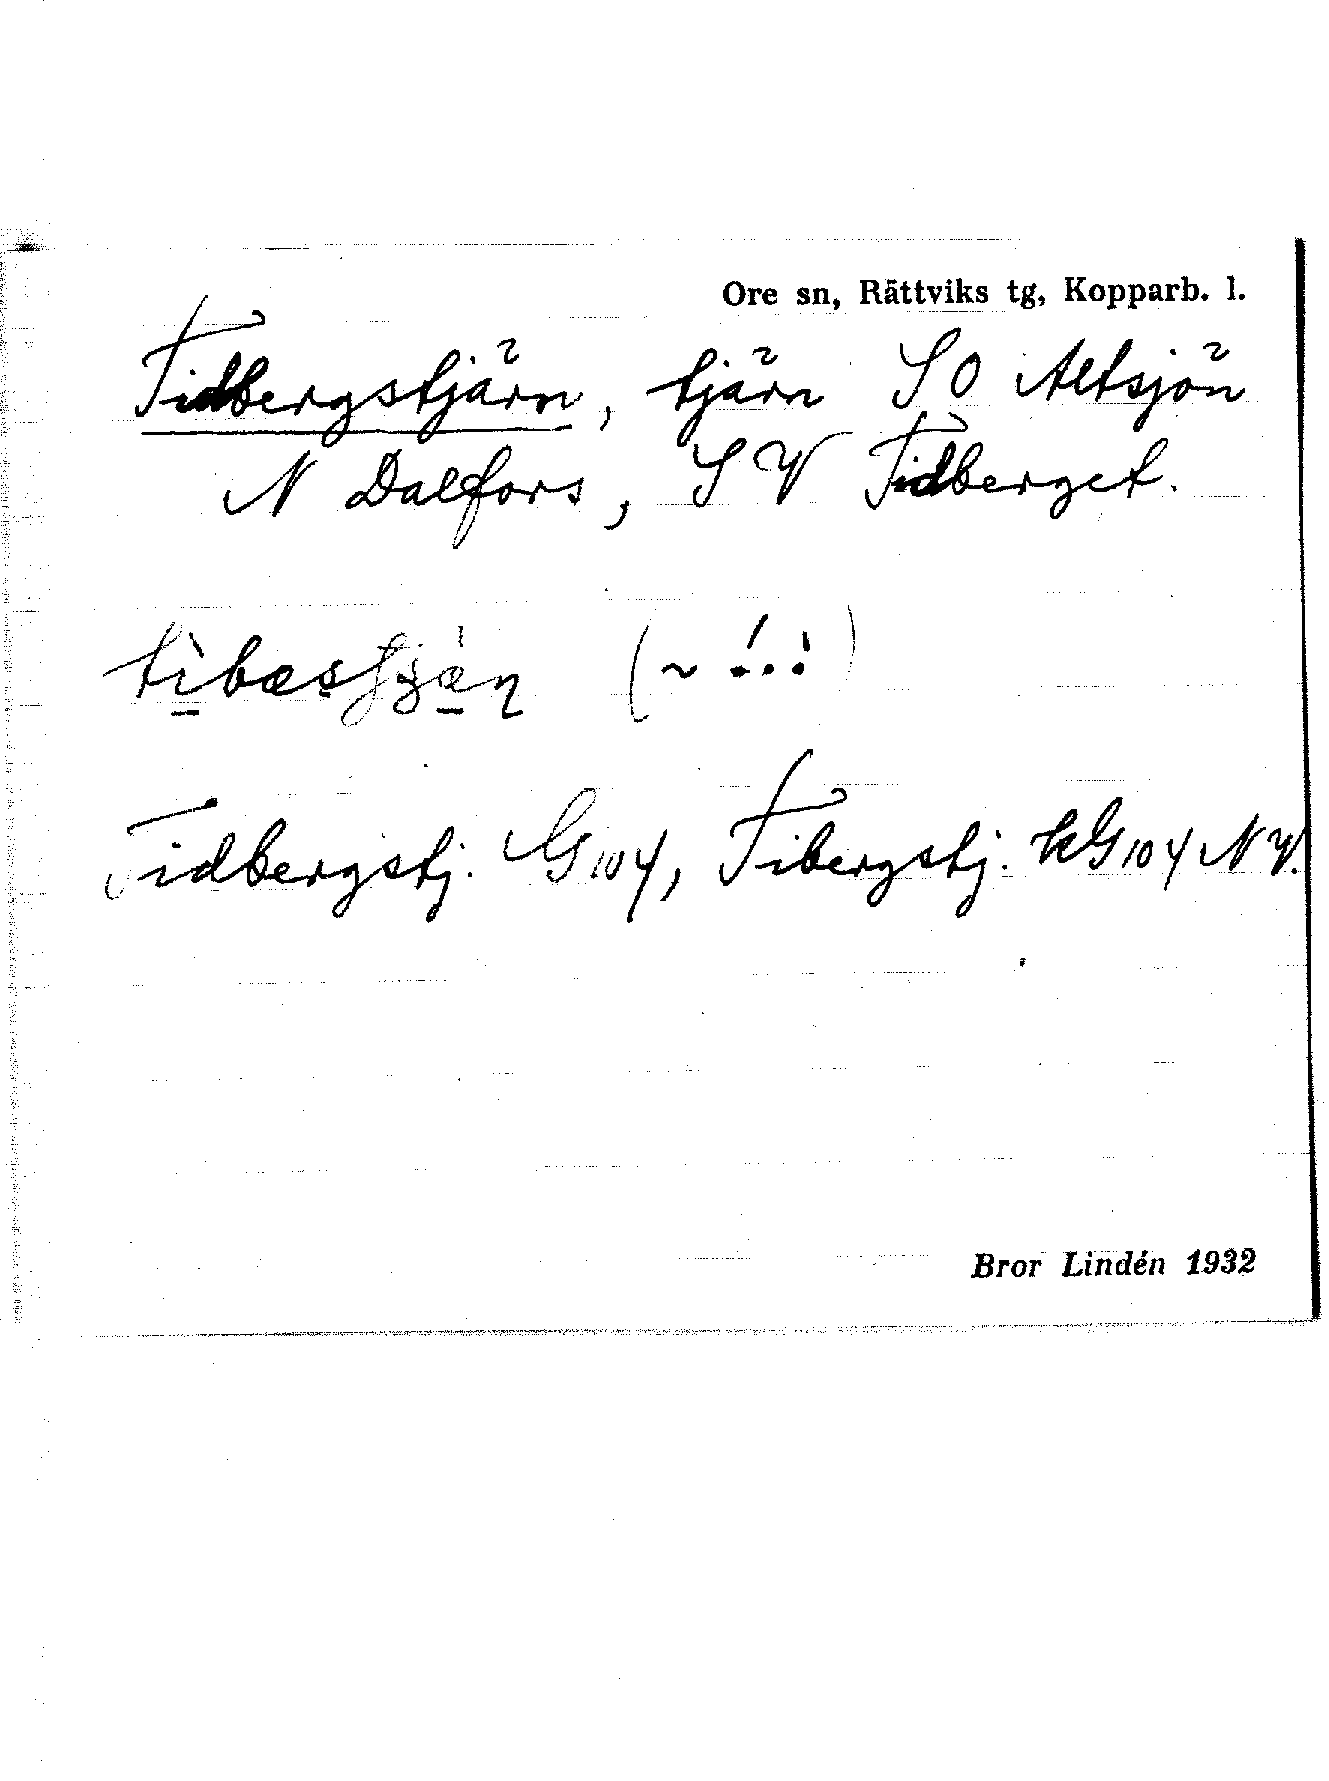 Ore sn, Rättviks tg, Kopparb. l.
Tidbergstjärn, tjärn SO Altsjön
N Dalfors, SV Tidberget.
Tidbergstj. G104, Tibergstj. kG104 NV.
Bror Lindén 1932